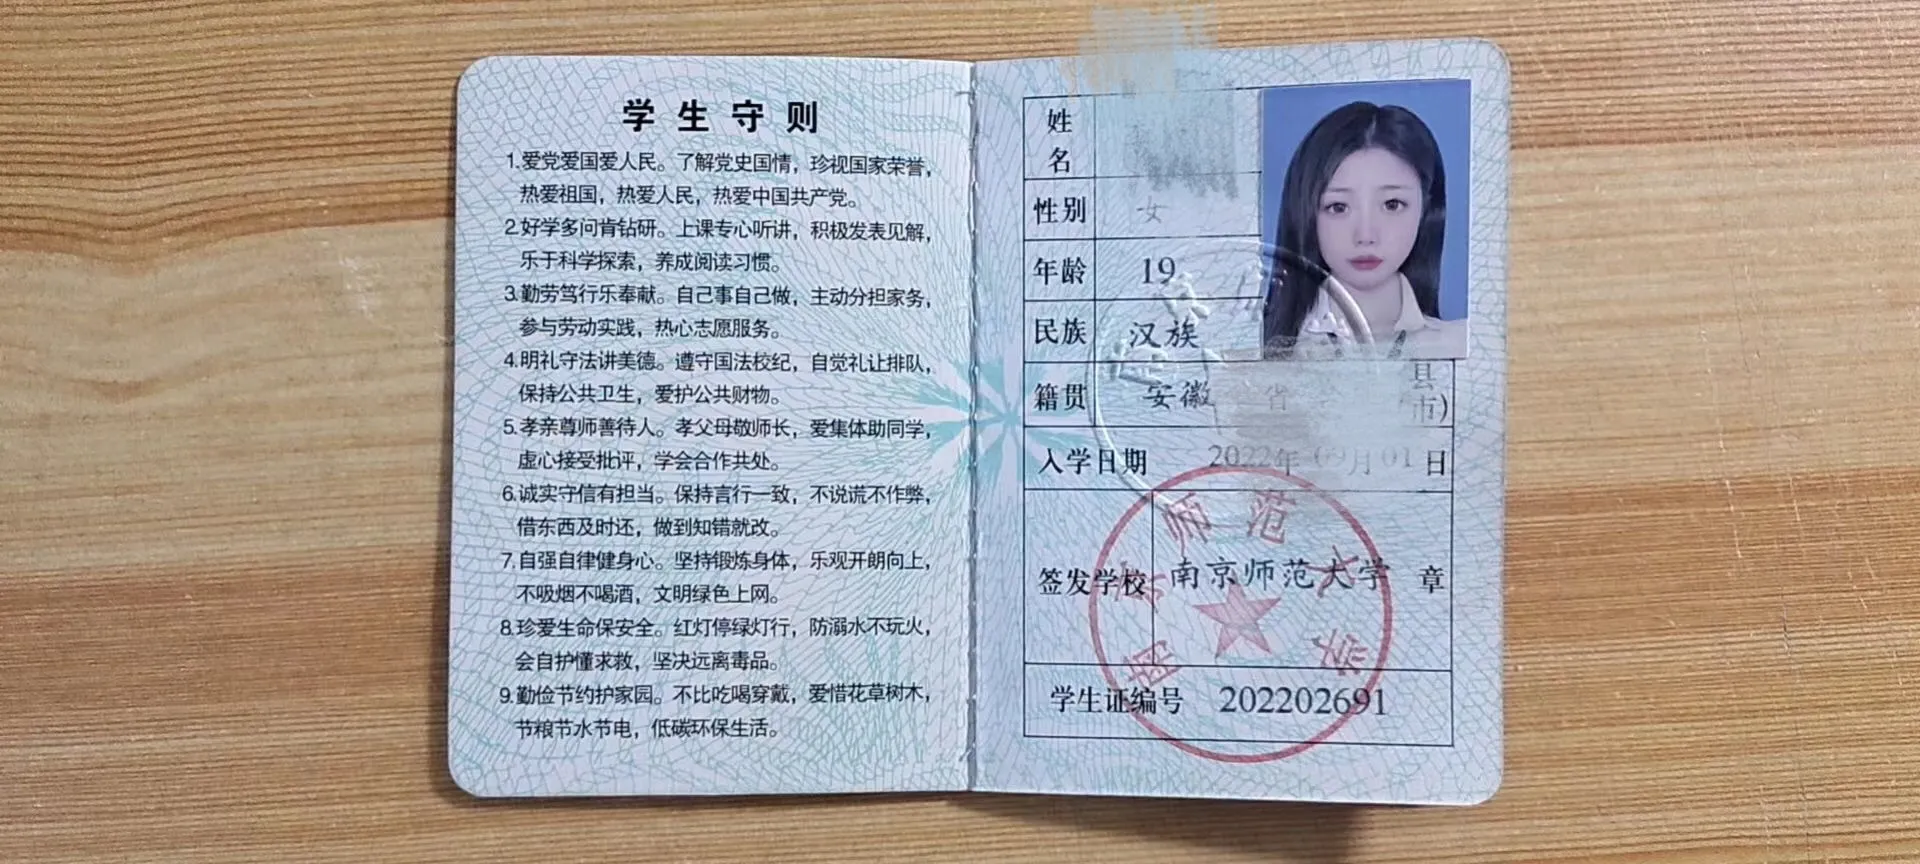 学生守则
1.爱党爱国爱人民。了解党史国情，珍视国家荣誉，
热爱祖国，热爱人民，热爱中国共产党。
2.好学多问肯钻研。上课专心听讲，积极发表见解，
乐于科学探索，养成阅读习惯。
3.勤劳笃行乐奉献。自己事自己做，主动分担家务，
参与劳动实践，热心志愿服务。
4.明礼守法讲美德。遵守国法校纪，自觉礼让排队，
保持公共卫生，爱护公共财物。
5.孝亲尊师善待人。孝父母敬师长，爱集体助同学，
虚心接受批评，学会合作共处。
6.诚实守信有担当。保持言行一致，不说谎不作弊，
借东西及时还，做到知错就改。
7.自强自律健身心。坚持锻炼身体，乐观开朗向上，
不吸烟不喝酒，文明绿色上网。
8.珍爱生命保安全。红灯停绿灯行，防溺水不玩火，
会自护懂求救，坚决远离毒品。
9.勤俭节约护家园。不比吃喝穿戴，爱惜花草树木，
节粮节水节电，低碳环保生活。
姓名
性别 女
年龄 19
民族 汉族
籍贯 安徽 省 县
市)
入学日期 2022年09月01日
签发学校 南京师范大学 章
南京师范大学
学生证编号 202202691